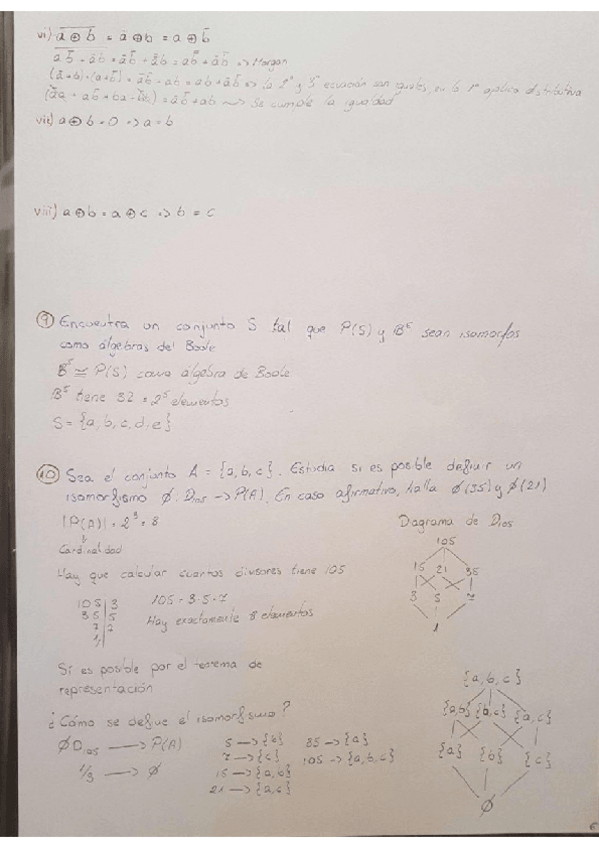 vi) \overline{a ⊕ b} = ā ⊕ b = a ⊕ b̄
a b̄ + ā b = a b̄ + ā b = ab + ā b̄ => Morgan
(ā+b)·(a+b̄) = ā b̄ + ab = ab + ā b̄ => la 2ª y 3ª ecuación son iguales, en la 1ª aplica distributiva
= ā b̄ + ab ~> Se cumple la igualdad
vii) a ⊕ b = 0 => a = b
viii) a ⊕ b = a ⊕ c => b = c
9 Encuentra un conjunto S tal que P(S) y B⁵ sean isomorfos
como álgebras del Boole
B⁵ ≅ P(S) como álgebra de Boole
B⁵ tiene 32 = 2⁵ elementos
S = {a, b, c, d, e}
10 Sea el conjunto A = {a, b, c}. Estudia si es posible definir un
isomorfismo Ø: D₁₀₅ -> P(A). En caso afirmativo, halla Ø(35) y Ø(21)
|P(A)| = 2³ = 8
Cardinalidad
Diagrama de D₁₀₅
105
15 21 35
3 5 7
1
Hay que calcular cuantos divisores tiene 105
105 | 3
35 | 5
7 | 7
1
105 = 3·5·7
Hay exactamente 8 elementos
Sí es posible por el teorema de
representación
¿Cómo se define el isomorfismo?
Ø D₁₀₅ -> P(A)
1/3 -> Ø
5 -> {b}
7 -> {c}
15 -> {a, b}
21 -> {a, c}
35 -> {a}
105 -> {a, b, c}
{a, b, c}
{a,b} {b,c} {a,c}
{a} {b} {c}
Ø